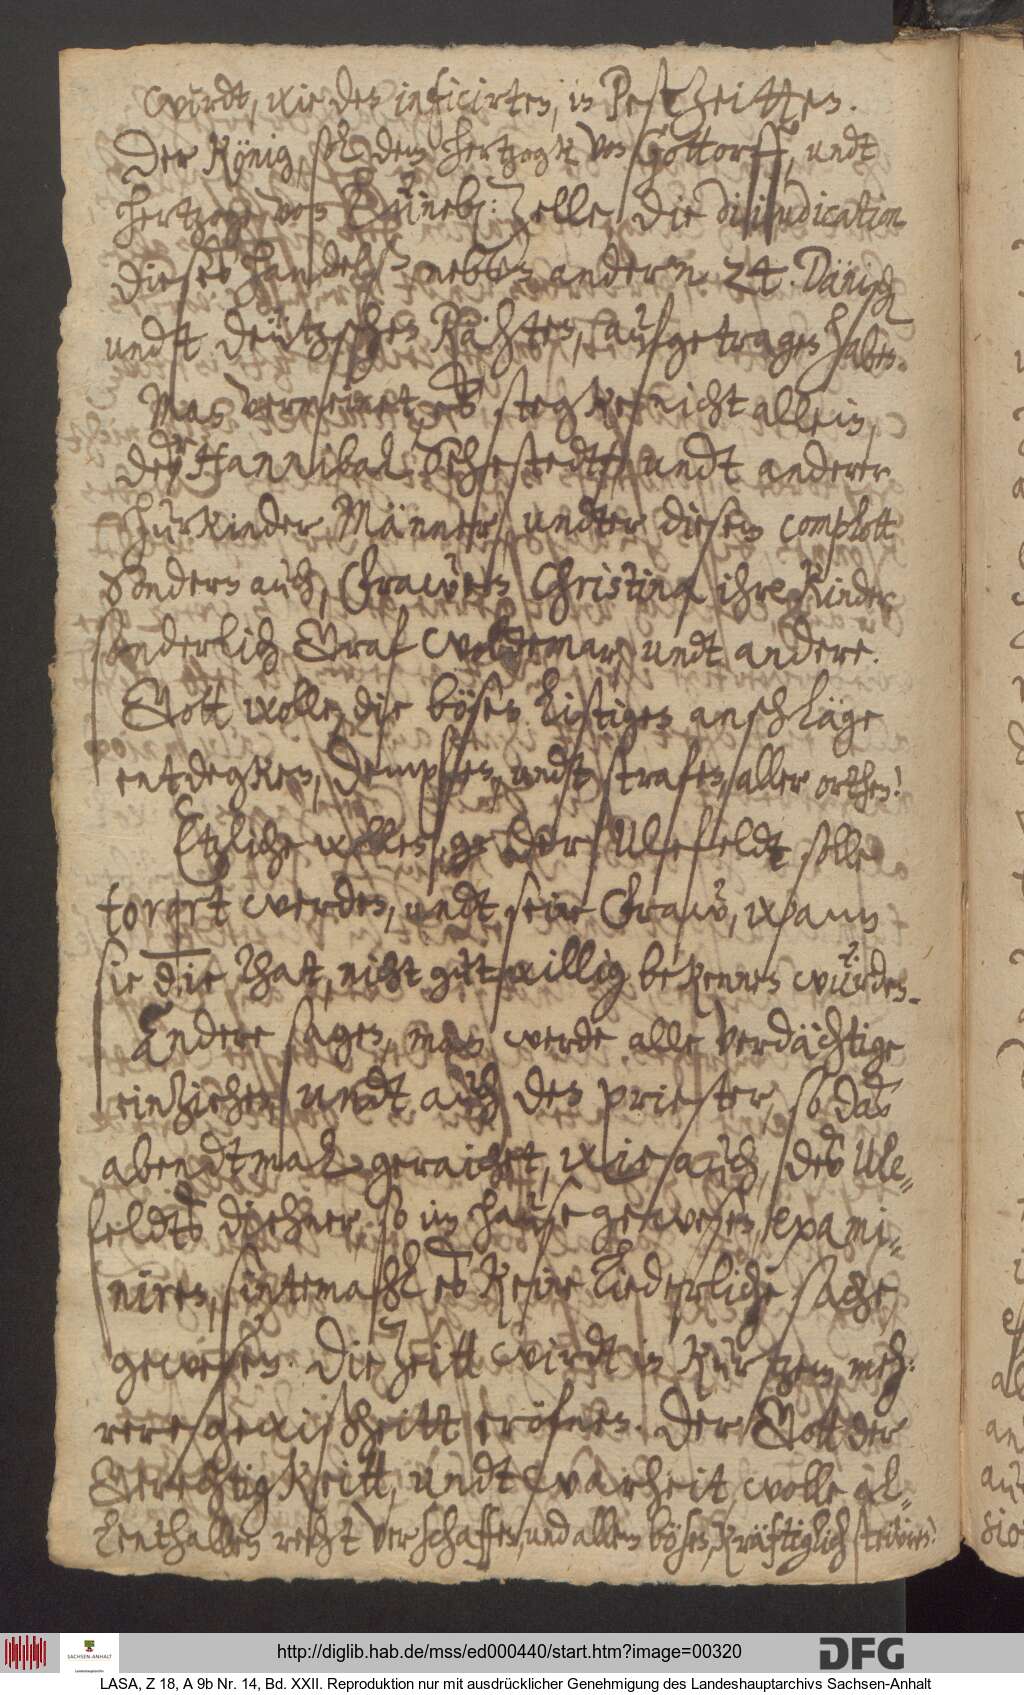 wirdt, wie den inficirten, in Pestzeitten.
Der König, soll dem Hertzogk von Gottorff, undt
Hertzoge von Lüneb: Zelle, die dijudication
dieses handelß nebenst anderen 24. Dänisch
undt Deützschen Rähten, aufgetragen haben.
Man vermeinet es stegke nicht allein,
des Hannibal Sehestedts undt anderer
hurkinder Männer, undter diesem complott
sondern auch, Frawen Christina ihre Kinder
sonderlich Graf Woldemar, undt andere.
Gott wolle, die bösen listigen anschläge
entdegken, dempfen, undt strafen, aller orthen!
Etzliche wollen, der Ulefeldt solle
torqrt werden, undt seine Fraw, wann
sie die that, nicht gutwillig bekennen würden.
Andere sagen, man werde alle verdächtige
einziehen undt auch den priester, so das
abendtmal geraichet, wie auch, des Ule-
feldts diehner so im hause gewesen, exami-
niren, sintemahl es keine liederliche sache,
gewesen. Die Zeitt wirdt in kurtzem meh:
rere gewißheitt eröfnen. Der Gott der
Gerechtigkeitt, undt Warheit, wolle al-
lenthalben recht verschaffen, und allem bösen, kräftiglich stewren!
http://diglib.hab.de/mss/ed000440/start.htm?image=00320
DFG
SACHSEN-ANHALT
LASA, Z 18, A 9b Nr. 14, Bd. XXII. Reproduktion nur mit ausdrücklicher Genehmigung des Landeshauptarchivs Sachsen-Anhalt